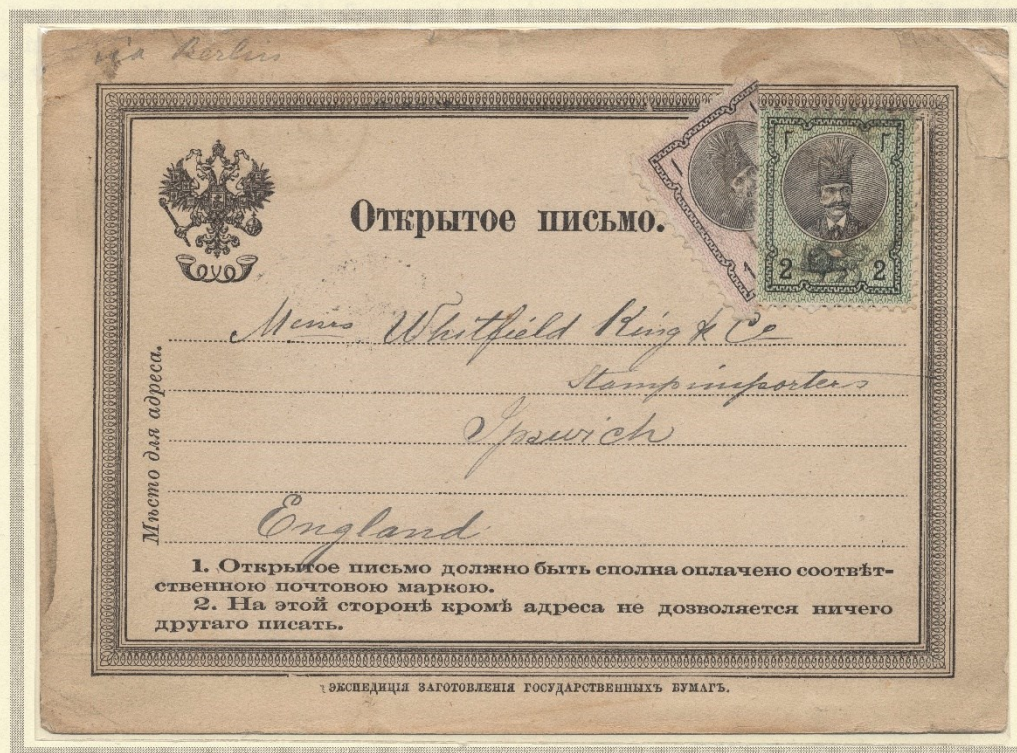 via Berlin
Открытое письмо.
1 1 1
۲ ۲
2 2
Мѣсто для адреса.
Messrs Whitfield King & Co
Stampimporters
Ipswich
England
1. Открытое письмо должно быть сполна оплачено соотвѣт-
ственною почтовою маркою.
2. На этой сторонѣ кромѣ адреса не дозволяется ничего
другаго писать.
ЭКСПЕДИЦІЯ ЗАГОТОВЛЕНІЯ ГОСУДАРСТВЕННЫХЪ БУМАГЪ.